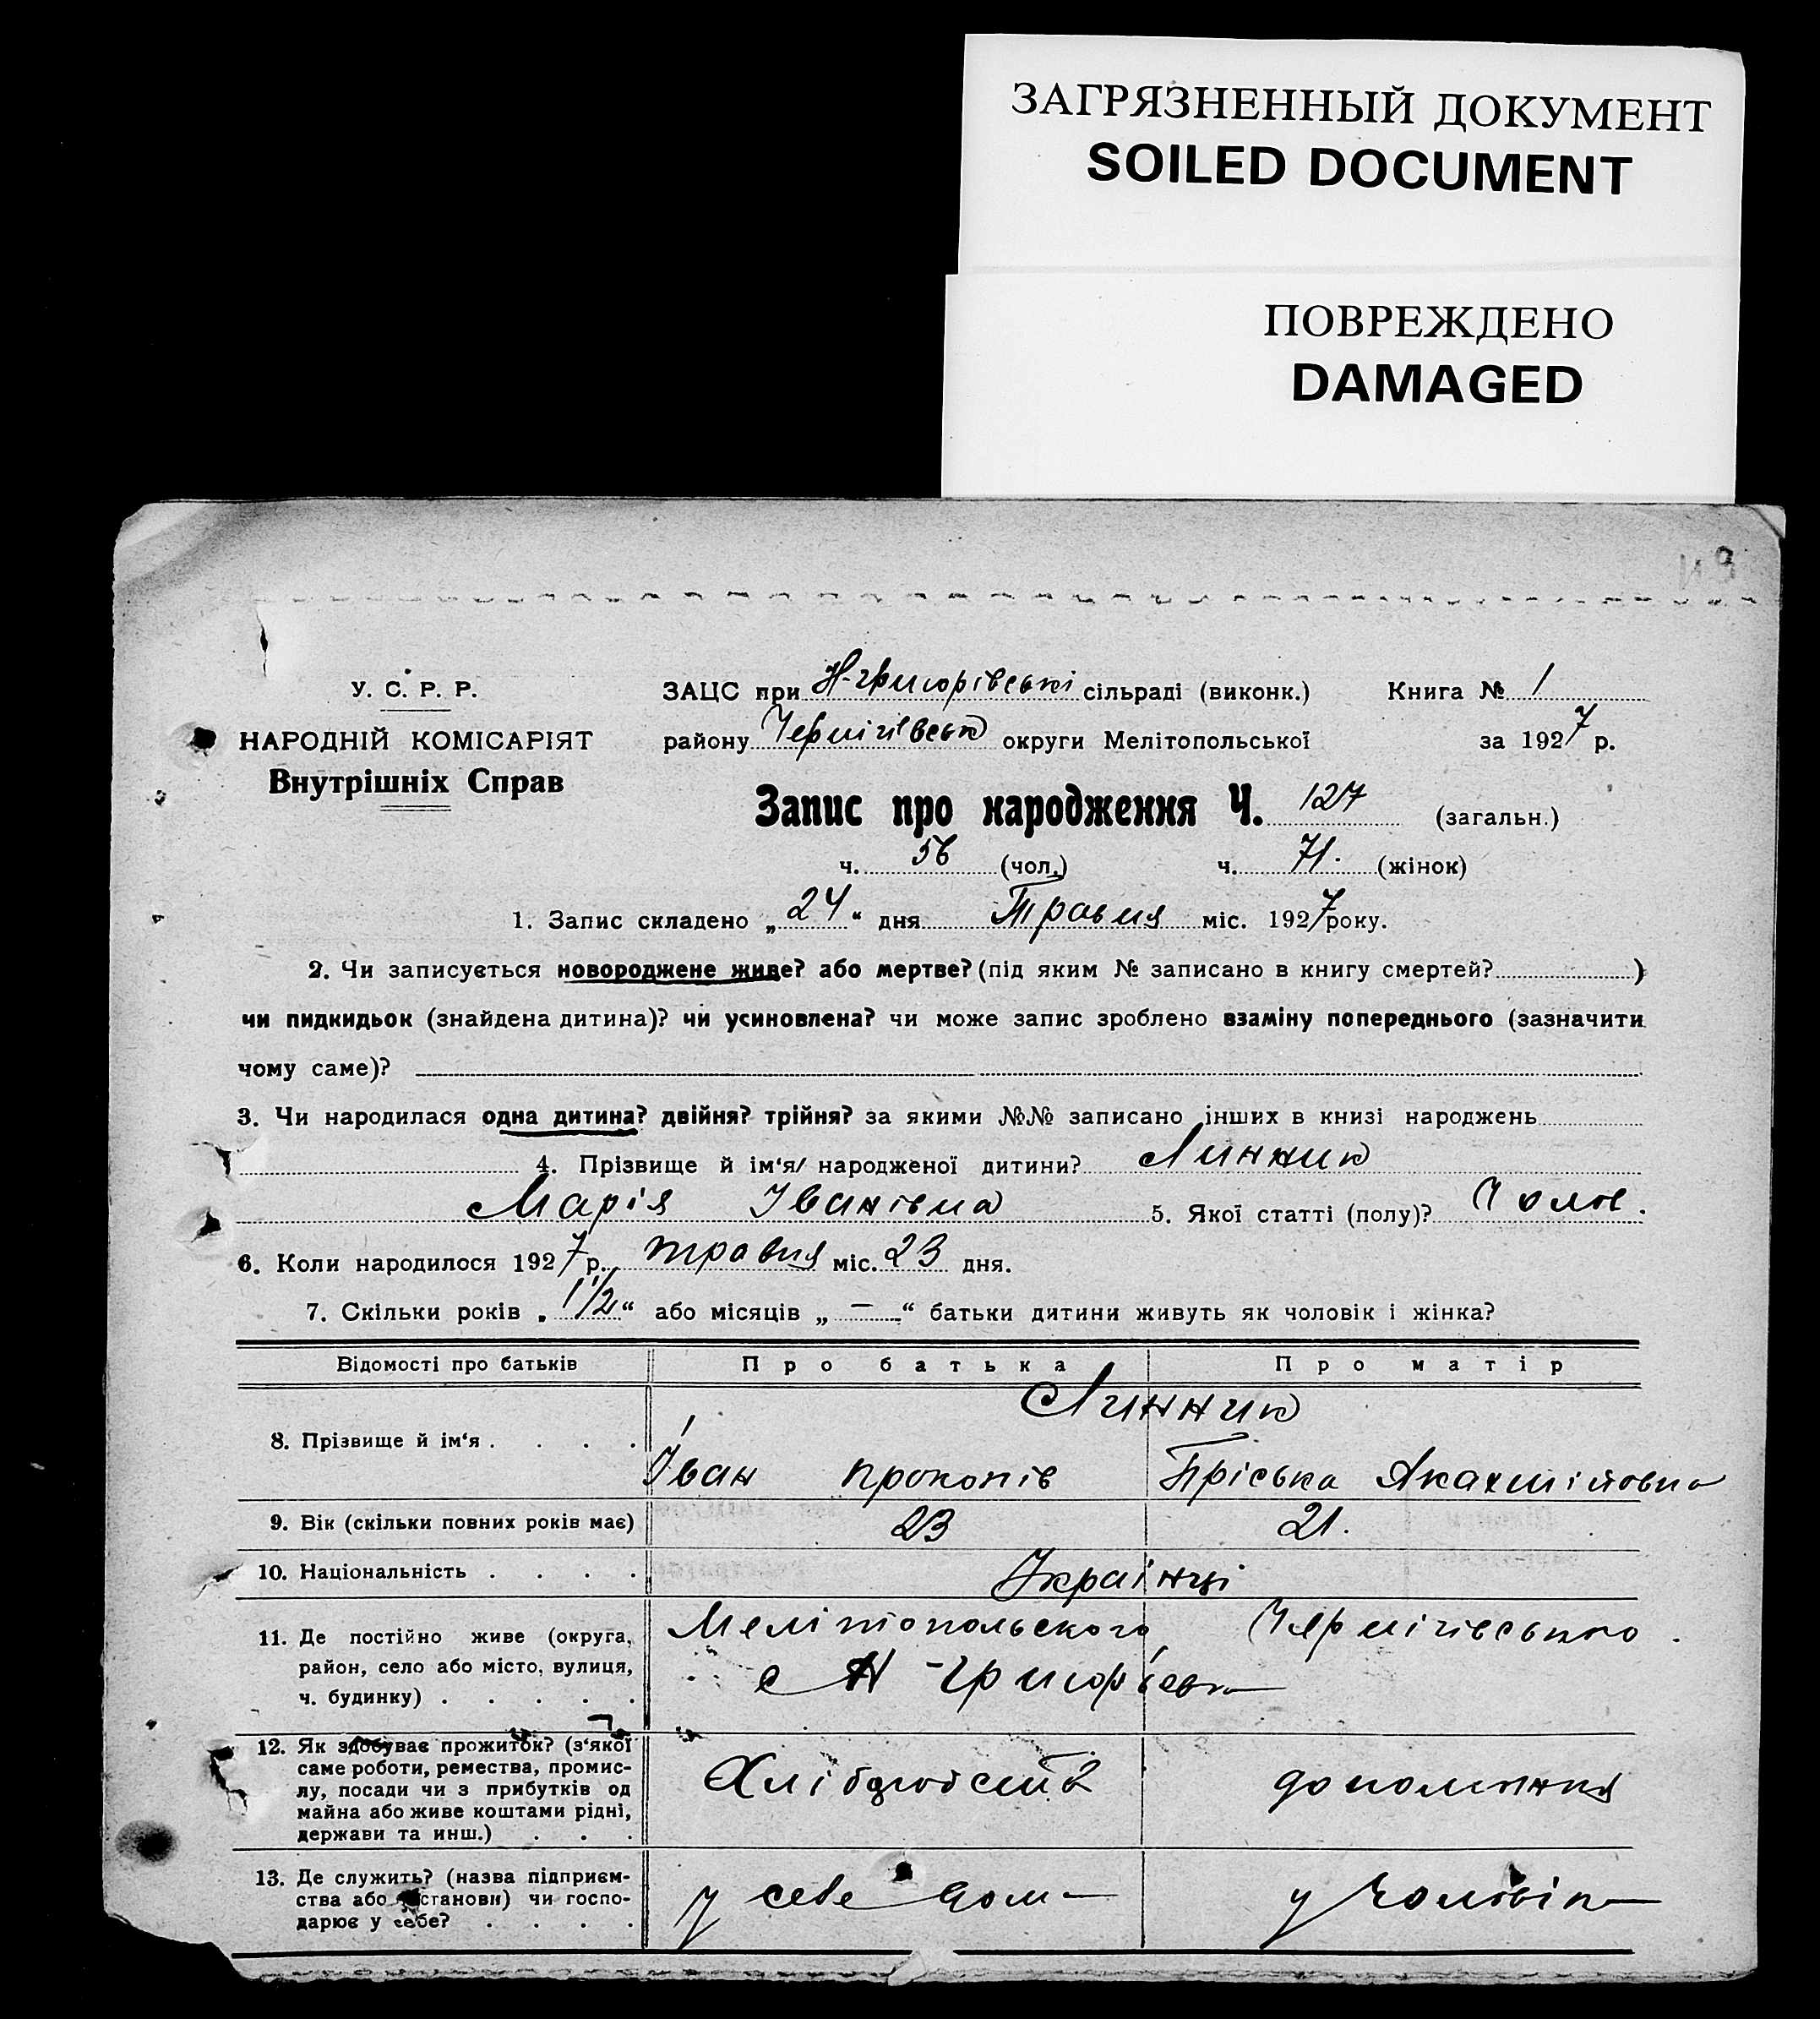 ЗАГРЯЗНЕННЫЙ ДОКУМЕНТ
SOILED DOCUMENT
ПОВРЕЖДЕНО
DAMAGED
У. С. Р. Р.
НАРОДНІЙ КОМІСАРІЯТ
Внутрішніх Справ
ЗАЦС при Н-григорівські сільраді (виконк.) Книга № 1
району Чернігівськ округи Мелітопольської за 1927 р.
Запис про народження Ч. 127 (загальн.)
ч. 56 (чол.) ч. 71. (жінок)
1. Запис складено „24“ дня Травня міс. 1927 року.
2. Чи записується новороджене живе? або мертве? (під яким № записано в книгу смертей? )
чи пидкидьок (знайдена дитина)? чи усиновлена? чи може запис зроблено взаміну попереднього (зазначити
чому саме)?
3. Чи народилася одна дитина? двійня? трійня? за якими №№ записано інших в книзі народжень
4. Прізвище й ім‘я/ народженої дитини? Линник
Марія Іванівна 5. Якої статті (полу)? Чолов.
6. Коли народилося 1927 р. травня міс. 23 дня.
7. Скільки років „1 1/2“ або місяців „—“ батьки дитини живуть як чоловік і жінка?
Відомості про батьків Про батька Про матір
Линник
8. Прізвище й ім‘я . . . . Іван Прокопів Пріська
9. Вік (скільки повних років має) 23 21.
10. Національність . . . . Українці
11. Де постійно живе (округа,
район, село або місто, вулиця,
ч. будинку) . . . . .
Мелітопольского Чернігівського.
с Н-григорівка
12. Як здобуває прожиток? (з‘якої
саме роботи, ремества, промис-
лу, посади чи з прибутків од
майна або живе коштами рідні,
держави та инш.) . . .
13. Де служить? (назва підприєм-
ства або установи) чи госпо-
дарює у себе? . . . .
у себе дома
у чоловіка